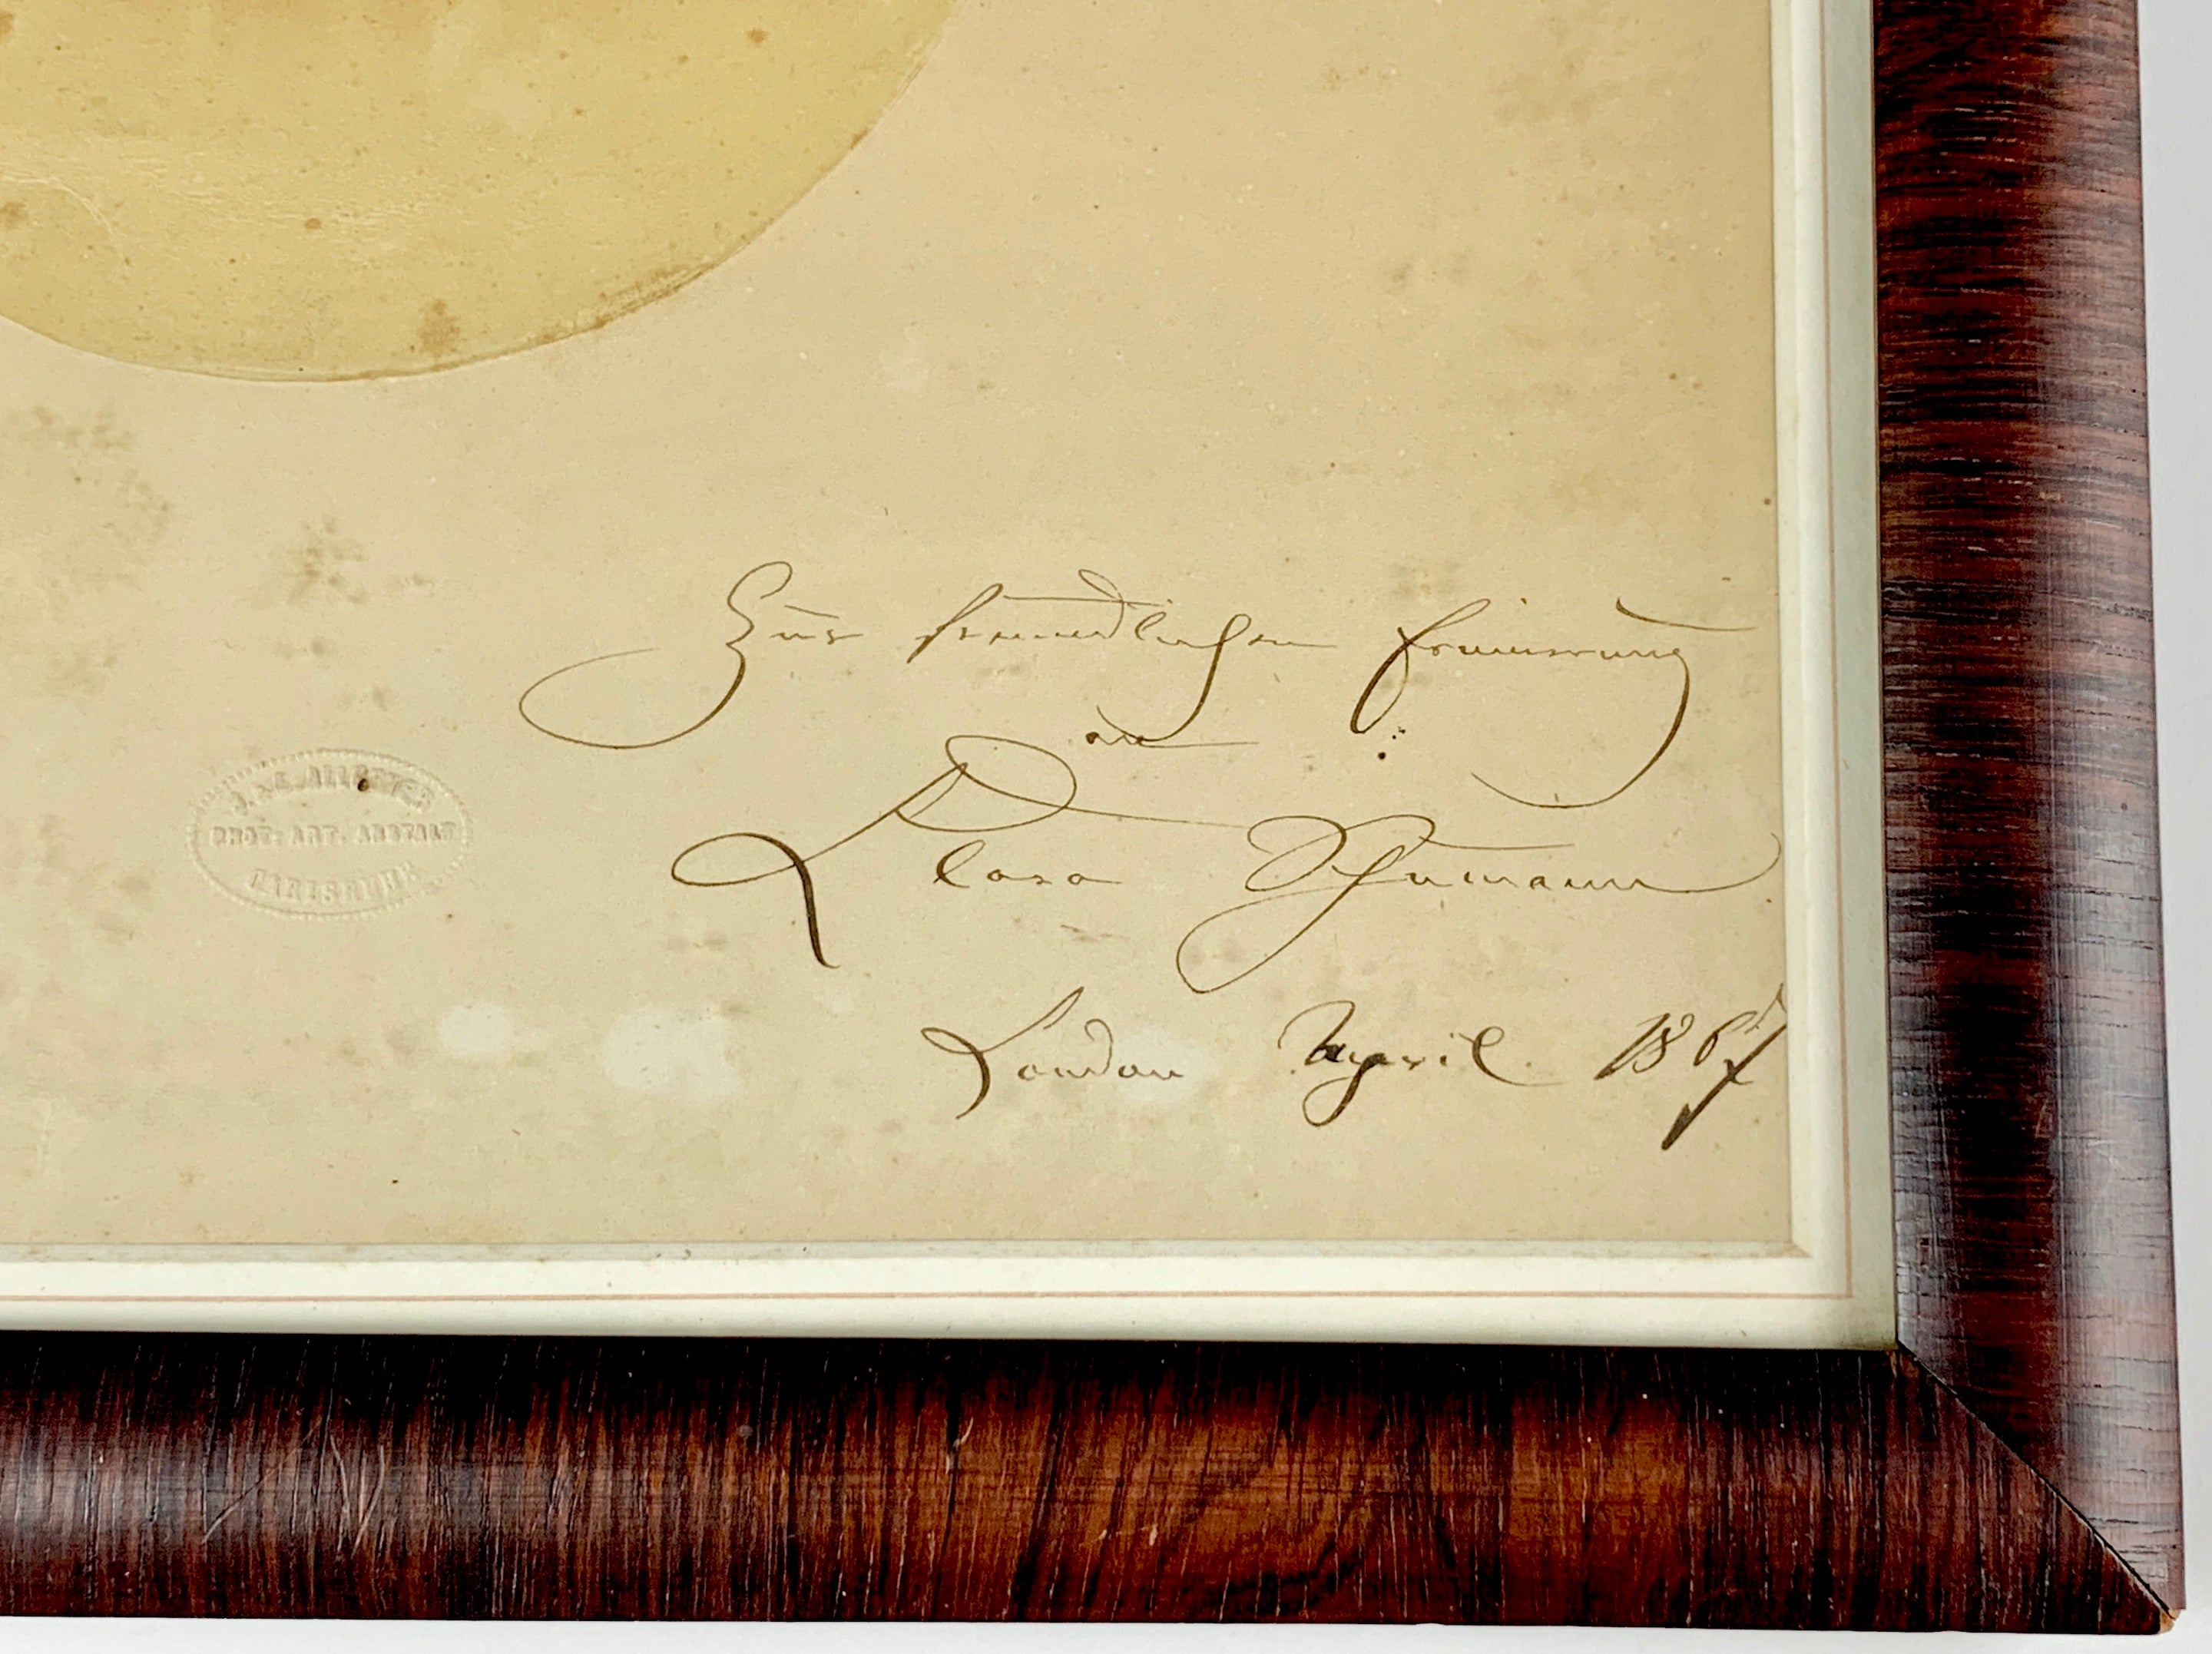 Zur freundlichen Erinnerung
an
Clara Schumann
London April 1867
J. & E. ALLGEYER
PHOT: ART. ANSTALT
CARLSRUHE